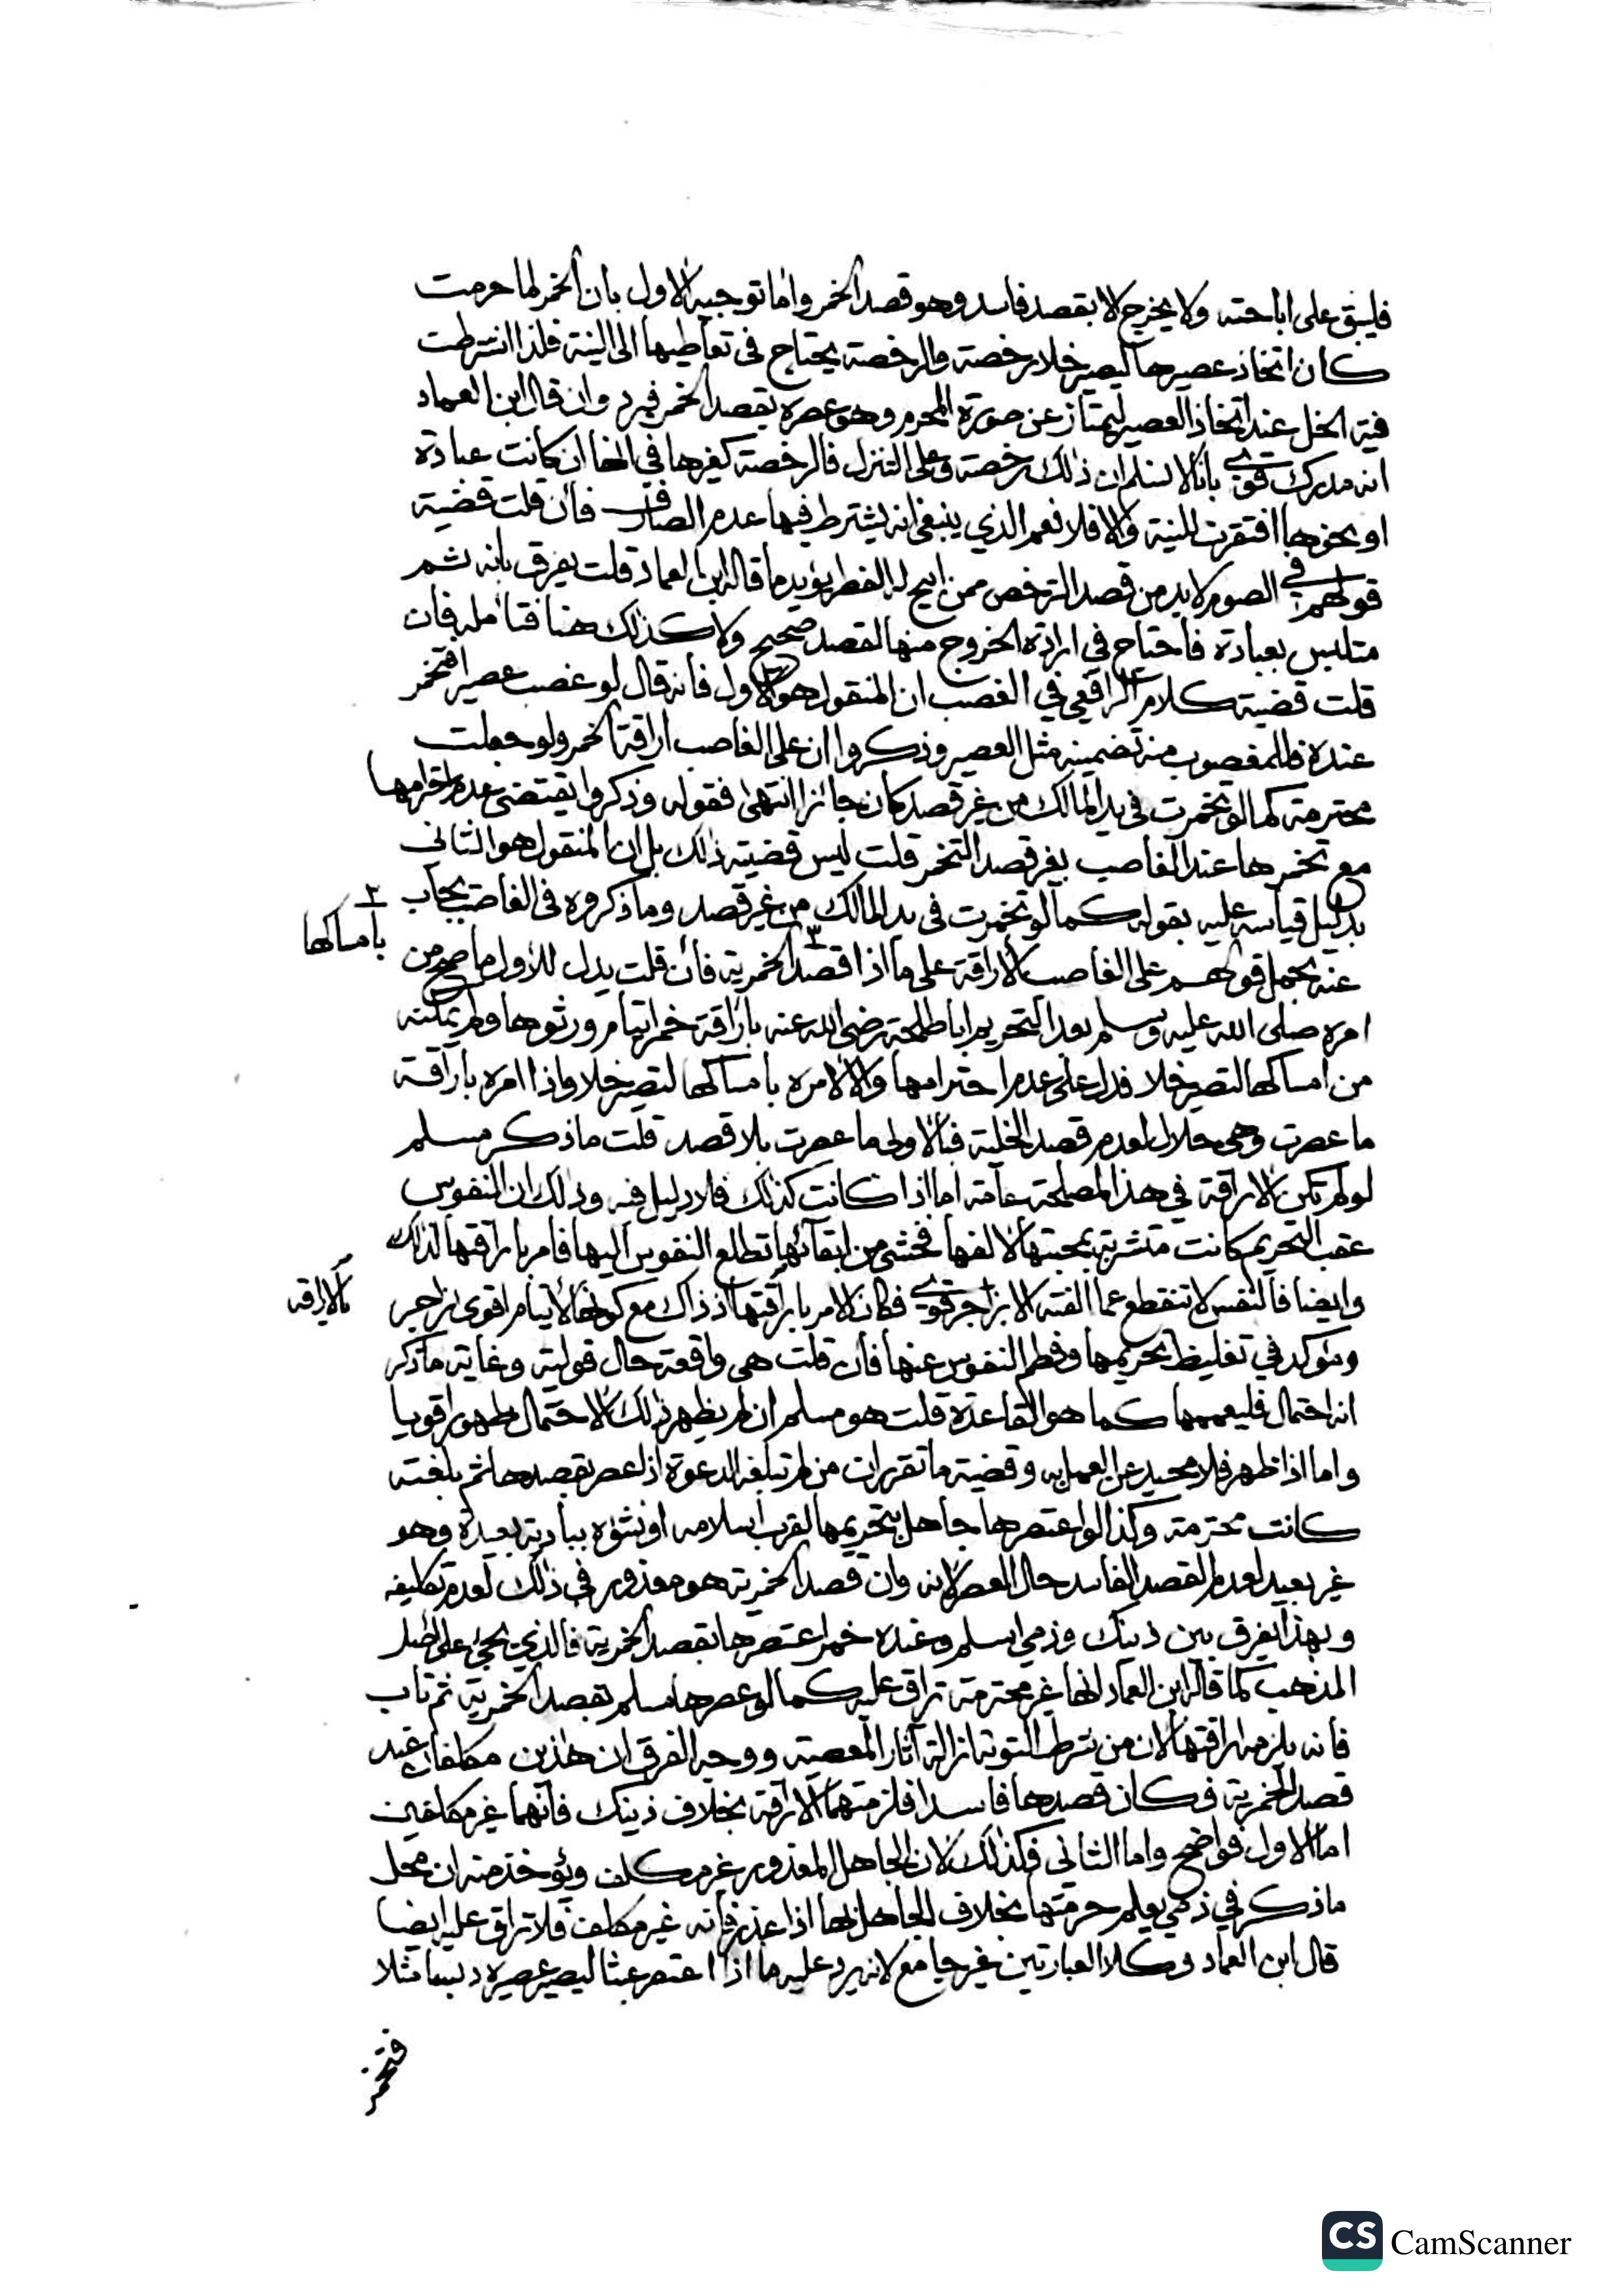 فليبق على اباحته ولا يخرج الا بقصد فاسد وهو قصد الخمر واما توجيه الاول بان الخمر لما حرمت
كان اتخاذ عصيرها ليصير خلا رخصة والرخصة يحتاج فى تعاطيها الى النية فلذا اشترطت
نية الخل عند اتخاذ العصير ليمتاز عن صورة المحرم وهو عصره بقصد الخمر فيرد وان قال ابن العماد
انه مدرك قوي بانا لا نسلم ان ذلك رخصة وعلى التنزل فالرخصة كغيرها في انها ان كانت عبادة
او نحوها افتقرت للنية والا فلا نعم الذي ينبغي انه يشترط فيها عدم الصارف فان قلت قضية
قولهم في الصوم لا بد من قصد الترخص ممن ابيح له الفطر يؤيد ما قاله ابن العماد قلت يفرق بانه ثم
متلبس بعبادة فاحتاج في ارادة الخروج منها لقصد صحيح ولا كذلك هنا فتامله فان
قلت قضية كلام الرافعي في الغصب ان المنقول هو الاول فانه قال لو غصب عصيرا فتخمر
عنده فللمغصوب منه تضمينه مثل العصير وذكروا ان على الغاصب اراقة الخمر ولو جعلت
محترمة كما لو تخمرت في يد المالك من غير قصد كان جائزا انتهى فقوله وذكروا يقتضي عدم احترامها
مع تخمرها عند الغاصب بغير قصد التخمر قلت ليس قضيته ذلك بل ان المنقول هو الثاني
بدليل قياسه عليه بقوله كما لو تخمرت في يد المالك من غير قصد وما ذكروه فى الغاصب يجاب
بامساكها
عنه بحمل قولهم على الغاصب الاراقة على ما اذا قصد الخمرية فان قلت يدل للاول ما صح من
امره صلى الله عليه وسلم بعد التحريم ابا طلحة رضى الله عنه باراقة خمر ايتام ورثوها ولم يمكنه
من امساكها لتصير خلا فدل على عدم احترامها والا لامره بامساكها لتصير خلا واذا امره باراقة
ما عصرت وهى حلال لعدم قصد الخلية فبالاولى ما عصرت بلا قصد قلت ما ذكر مسلم
لو لم تكن الاراقة في هذا لمصلحة عامة اما اذا كانت كذلك فلا دليل فيه وذلك ان النفوس
عقب التحريم كانت متشربة بمحبتها لالفها فخشي من ابقائها تطلع النفوس اليها فامر باراقتها لذلك
وايضا فالنفس لا تنقطع عما الفته الا بزاجر قوي فكان الامر باراقتها اذ ذاك مع كونها لأيتام اقوى زاجر
بالاراقه
ومؤكد في تغليظ تحريمها وفطم النفوس عنها فان قلت هى واقعة حال قولية وغاية ما ذكر
انه احتمال فليعممها كما هو القاعدة قلت هو مسلم ان لم يظهر ذلك الاحتمال ظهورا قويا
واما اذا ظهر فلا محيد عن العمل به وقضية ما تقرر ان من لم تبلغه الدعوة اذا عصر بقصدها ثم بلغته
كانت محترمة وكذا لو اعتصرها جاهل بتحريمها لقرب اسلامه او نشؤه ببادية بعيدة وهو
غير بعيد لعدم القصد الفاسد حال العصر لانه وان قصد الخمرية هو معذور في ذلك لعدم تكليفه
وبهذا يفرق بين ذينك وذمي اسلم وعنده خمر اعتصرها بقصد الخمرية فالذي يجئ على اصل
المذهب كما قاله ابن العماد انها غير محترمة تراق عليه كما لو عصرها مسلم بقصد الخمرية ثم تاب
فانه يلزمه اراقتها لان من شرط التوبة ازالة آثار المعصية ووجه الفرق ان هذين مكلفان عند
قصد الخمرية فكان قصدها فاسدا فلزمتهما الاراقة بخلاف ذينك فانهما غير مكلفين
اما الاول فواضح واما الثاني فكذلك لان الجاهل المعذور غير مكلف ويؤخذ منه ان محل
ما ذكر في ذمي يعلم حرمتها بخلاف الجاهل بها اذا عذر فانه غير مكلف فلا تراق عليه ايضا
قال ابن العماد وكلا العبارتين غير جامع لانه يرد عليه ما اذا اعتصر عنبا ليصير عصيره دبسا مثلا
فتخمر
CS CamScanner